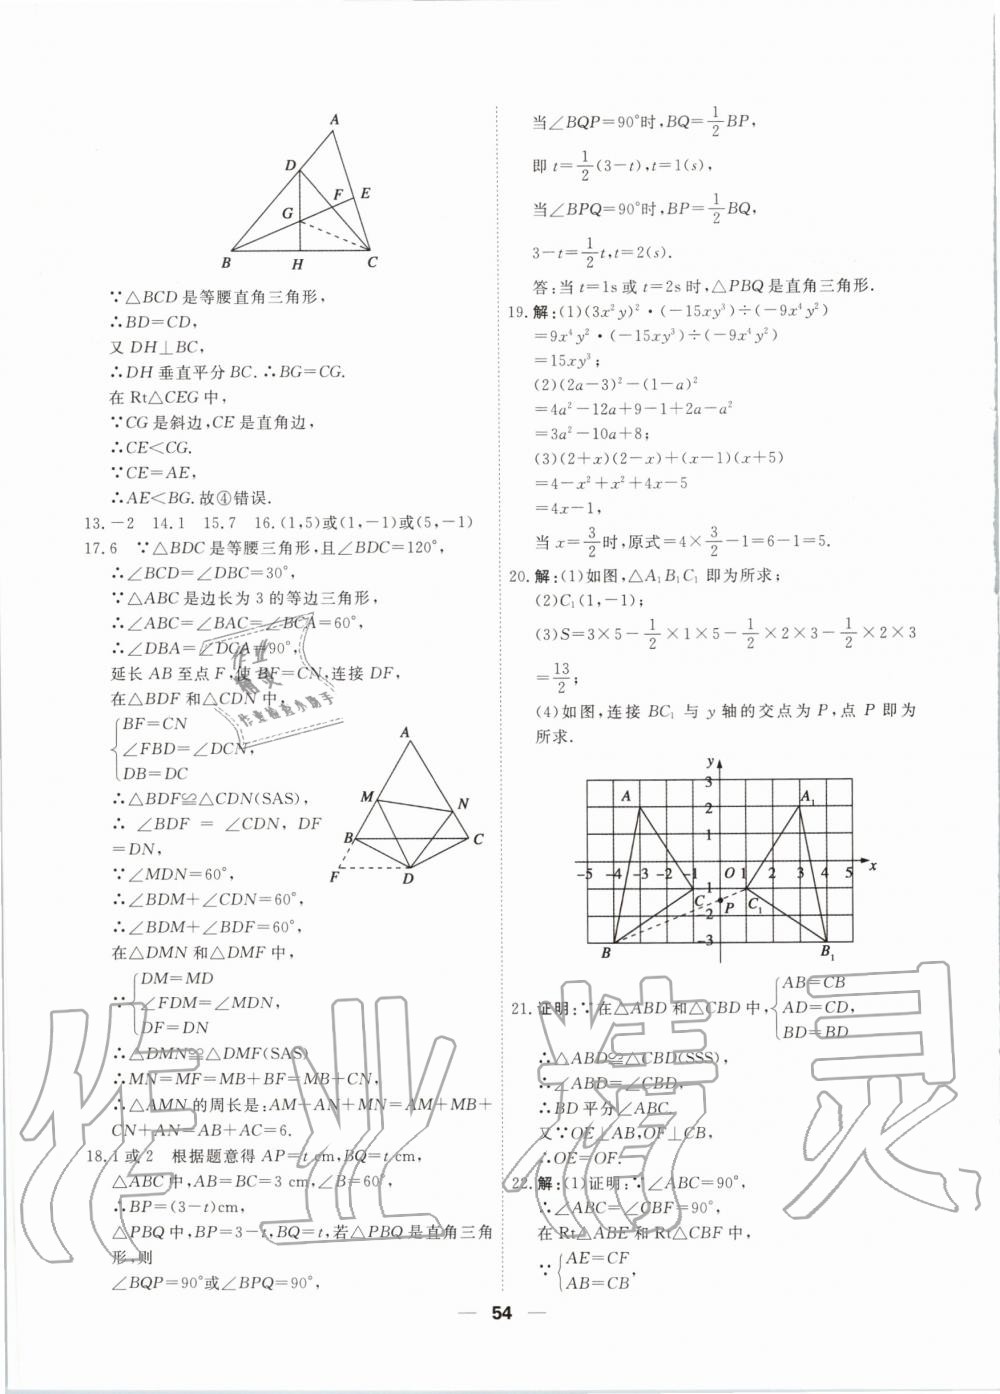 A
D
F
E
G
B
H
C
∵△BCD是等腰直角三角形，
∴BD＝CD，
又DH⊥BC，
∴DH垂直平分BC．∴BG＝CG．
在Rt△CEG中，
∵CG是斜边，CE是直角边，
∴CE＜CG．
∵CE＝AE，
∴AE＜BG．故④错误．
13.－2　14.1　15.7　16.(1,5)或(1,－1)或(5,－1)
17.6　∵△BDC是等腰三角形，且∠BDC＝120°，
∴∠BCD＝∠DBC＝30°，
∵△ABC是边长为3的等边三角形，
∴∠ABC＝∠BAC＝∠BCA＝60°，
∴∠DBA＝∠DCA＝90°，
延长AB至点F，使BF＝CN，连接DF，
在△BDF和△CDN中，
BF＝CN
∠FBD＝∠DCN，
DB＝DC
∴△BDF≌△CDN(SAS)，
∴ ∠BDF ＝ ∠CDN，DF
＝DN，
∵∠MDN＝60°，
∴∠BDM＋∠CDN＝60°，
∴∠BDM＋∠BDF＝60°，
A
M
N
B
C
F
D
在△DMN和△DMF中，
DM＝MD
∵ ∠FDM＝∠MDN，
DF＝DN
∴△DMN≌△DMF(SAS)
∴MN＝MF＝MB＋BF＝MB＋CN，
∴△AMN的周长是：AM＋AN＋MN＝AM＋MB＋
CN＋AN＝AB＋AC＝6.
18.1或2　根据题意得AP＝t cm，BQ＝t cm，
△ABC中，AB＝BC＝3 cm，∠B＝60°，
∴BP＝(3－t)cm，
△PBQ中，BP＝3－t，BQ＝t，若△PBQ是直角三角
形，则
∠BQP＝90°或∠BPQ＝90°，
当∠BQP＝90°时，BQ＝1/2 BP，
即t＝1/2(3－t)，t＝1(s)，
当∠BPQ＝90°时，BP＝1/2 BQ，
3－t＝1/2 t，t＝2(s)．
答：当t＝1s或t＝2s时，△PBQ是直角三角形．
19.解：(1)(3x²y)²·(－15xy³)÷(－9x⁴y²)
＝9x⁴y²·(－15xy³)÷(－9x⁴y²)
＝15xy³；
(2)(2a－3)²－(1－a)²
＝4a²－12a＋9－1＋2a－a²
＝3a²－10a＋8；
(3)(2＋x)(2－x)＋(x－1)(x＋5)
＝4－x²＋x²＋4x－5
＝4x－1，
当x＝3/2时，原式＝4×3/2－1＝6－1＝5.
20.解：(1)如图，△A₁B₁C₁即为所求；
(2)C₁(1,－1)；
(3)S＝3×5－1/2×1×5－1/2×2×3－1/2×2×3
＝13/2；
(4)如图，连接BC₁与y轴的交点为P，点P即为
所求．
y
3
A
2
A₁
1
－5 －4 －3 －2 －1 O 1 2 3 4 5 x
－1
C
P
C₁
－2
－3
B
B₁
21.证明：∵在△ABD和△CBD中，
AB＝CB
AD＝CD，
BD＝BD
∴△ABD≌△CBD(SSS)，
∴∠ABD＝∠CBD，
∴BD平分∠ABC．
又∵OE⊥AB，OF⊥CB，
∴OE＝OF．
22.解：(1)证明：∵∠ABC＝90°，
∴∠ABC＝∠CBF＝90°，
在Rt△ABE和Rt△CBF中，
∵ AE＝CF
AB＝CB，
54
作业精灵
作业
精灵
作业检查小助手